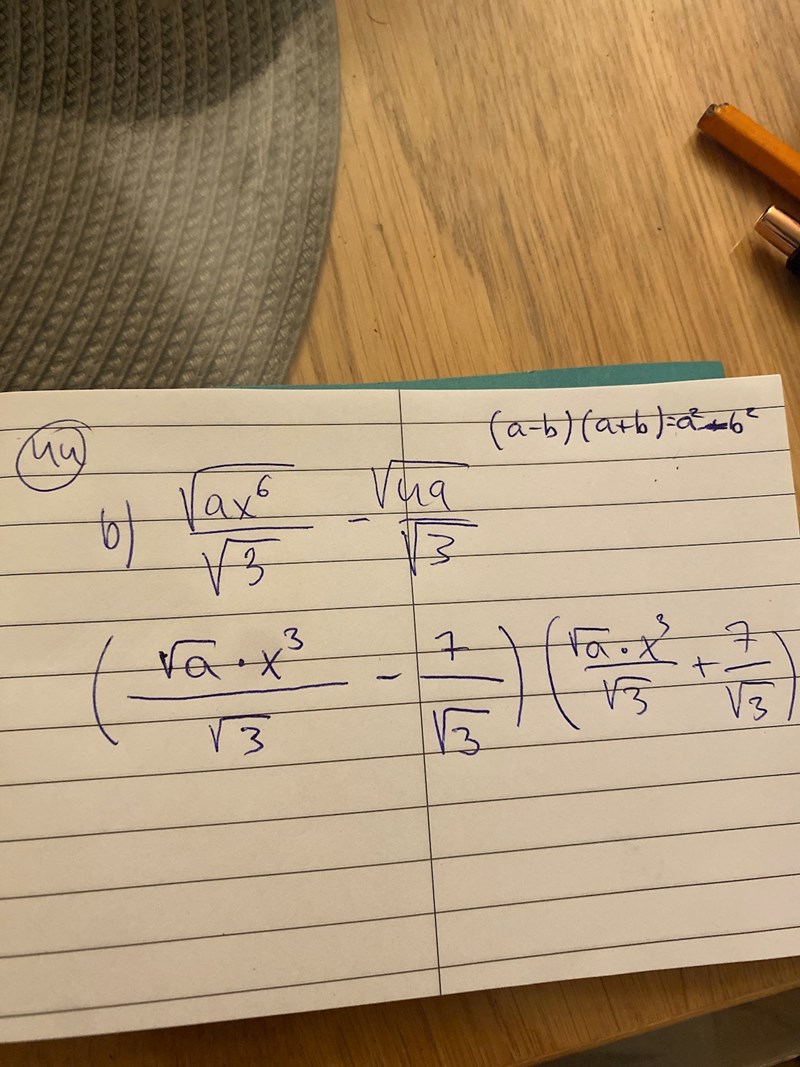 (a-b)(a+b)=a²-b²
44
b) √(ax⁶)/√3 - √49/√3
(√a·x³/√3 - 7/√3)(√a·x³/√3 + 7/√3)